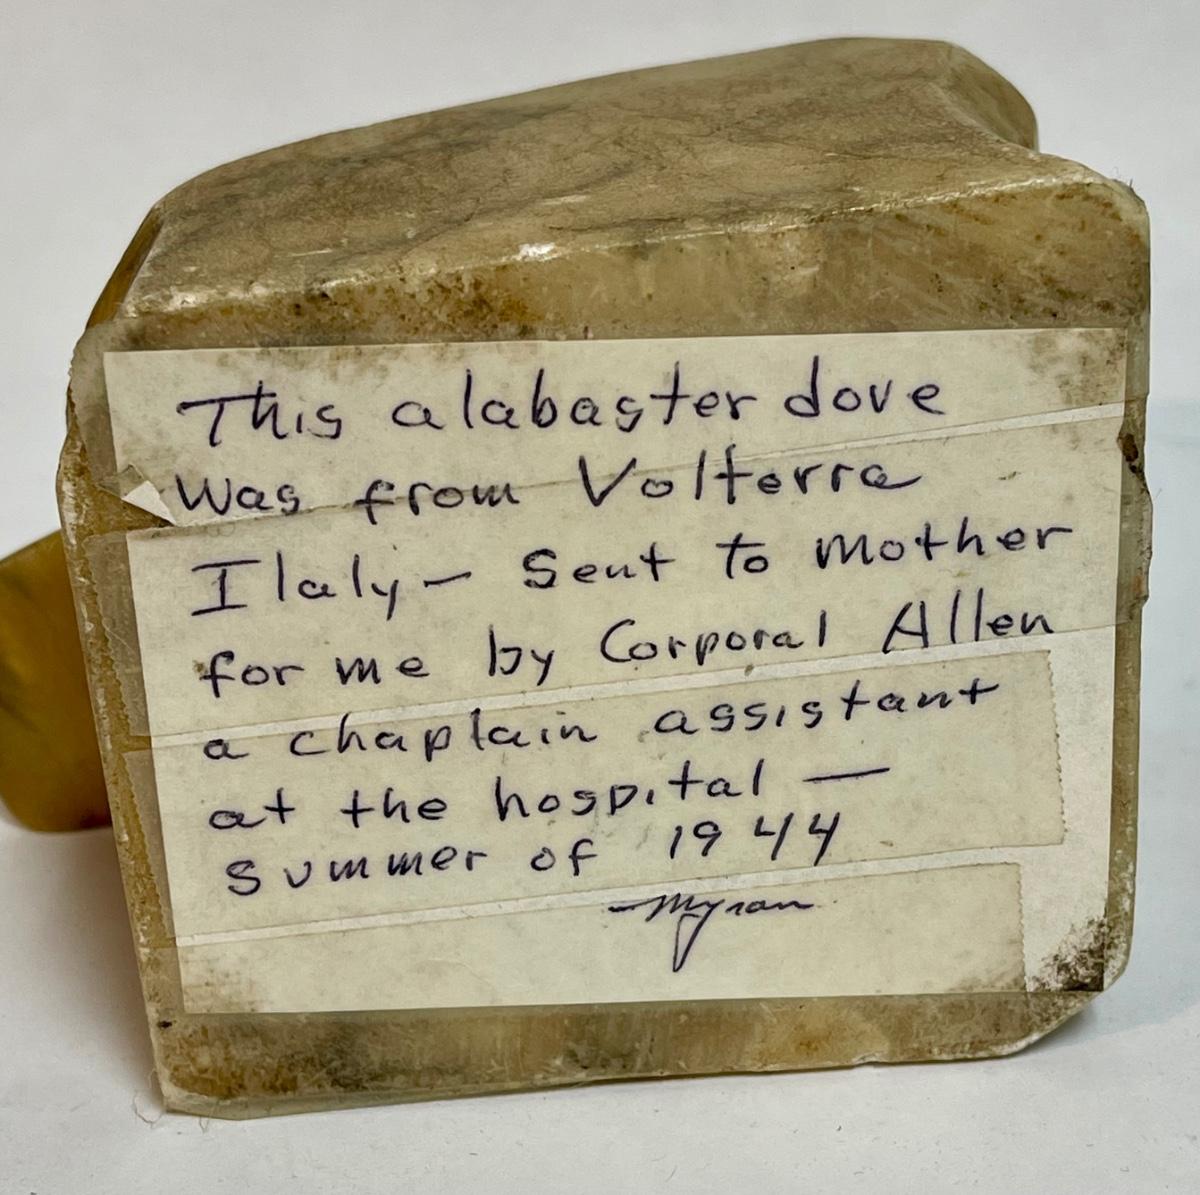 This alabaster dove
Was from Volterra
Ilaly — Sent to mother
for me by Corporal Allen
a chaplain assistant
at the hospital —
summer of 1944
Myron